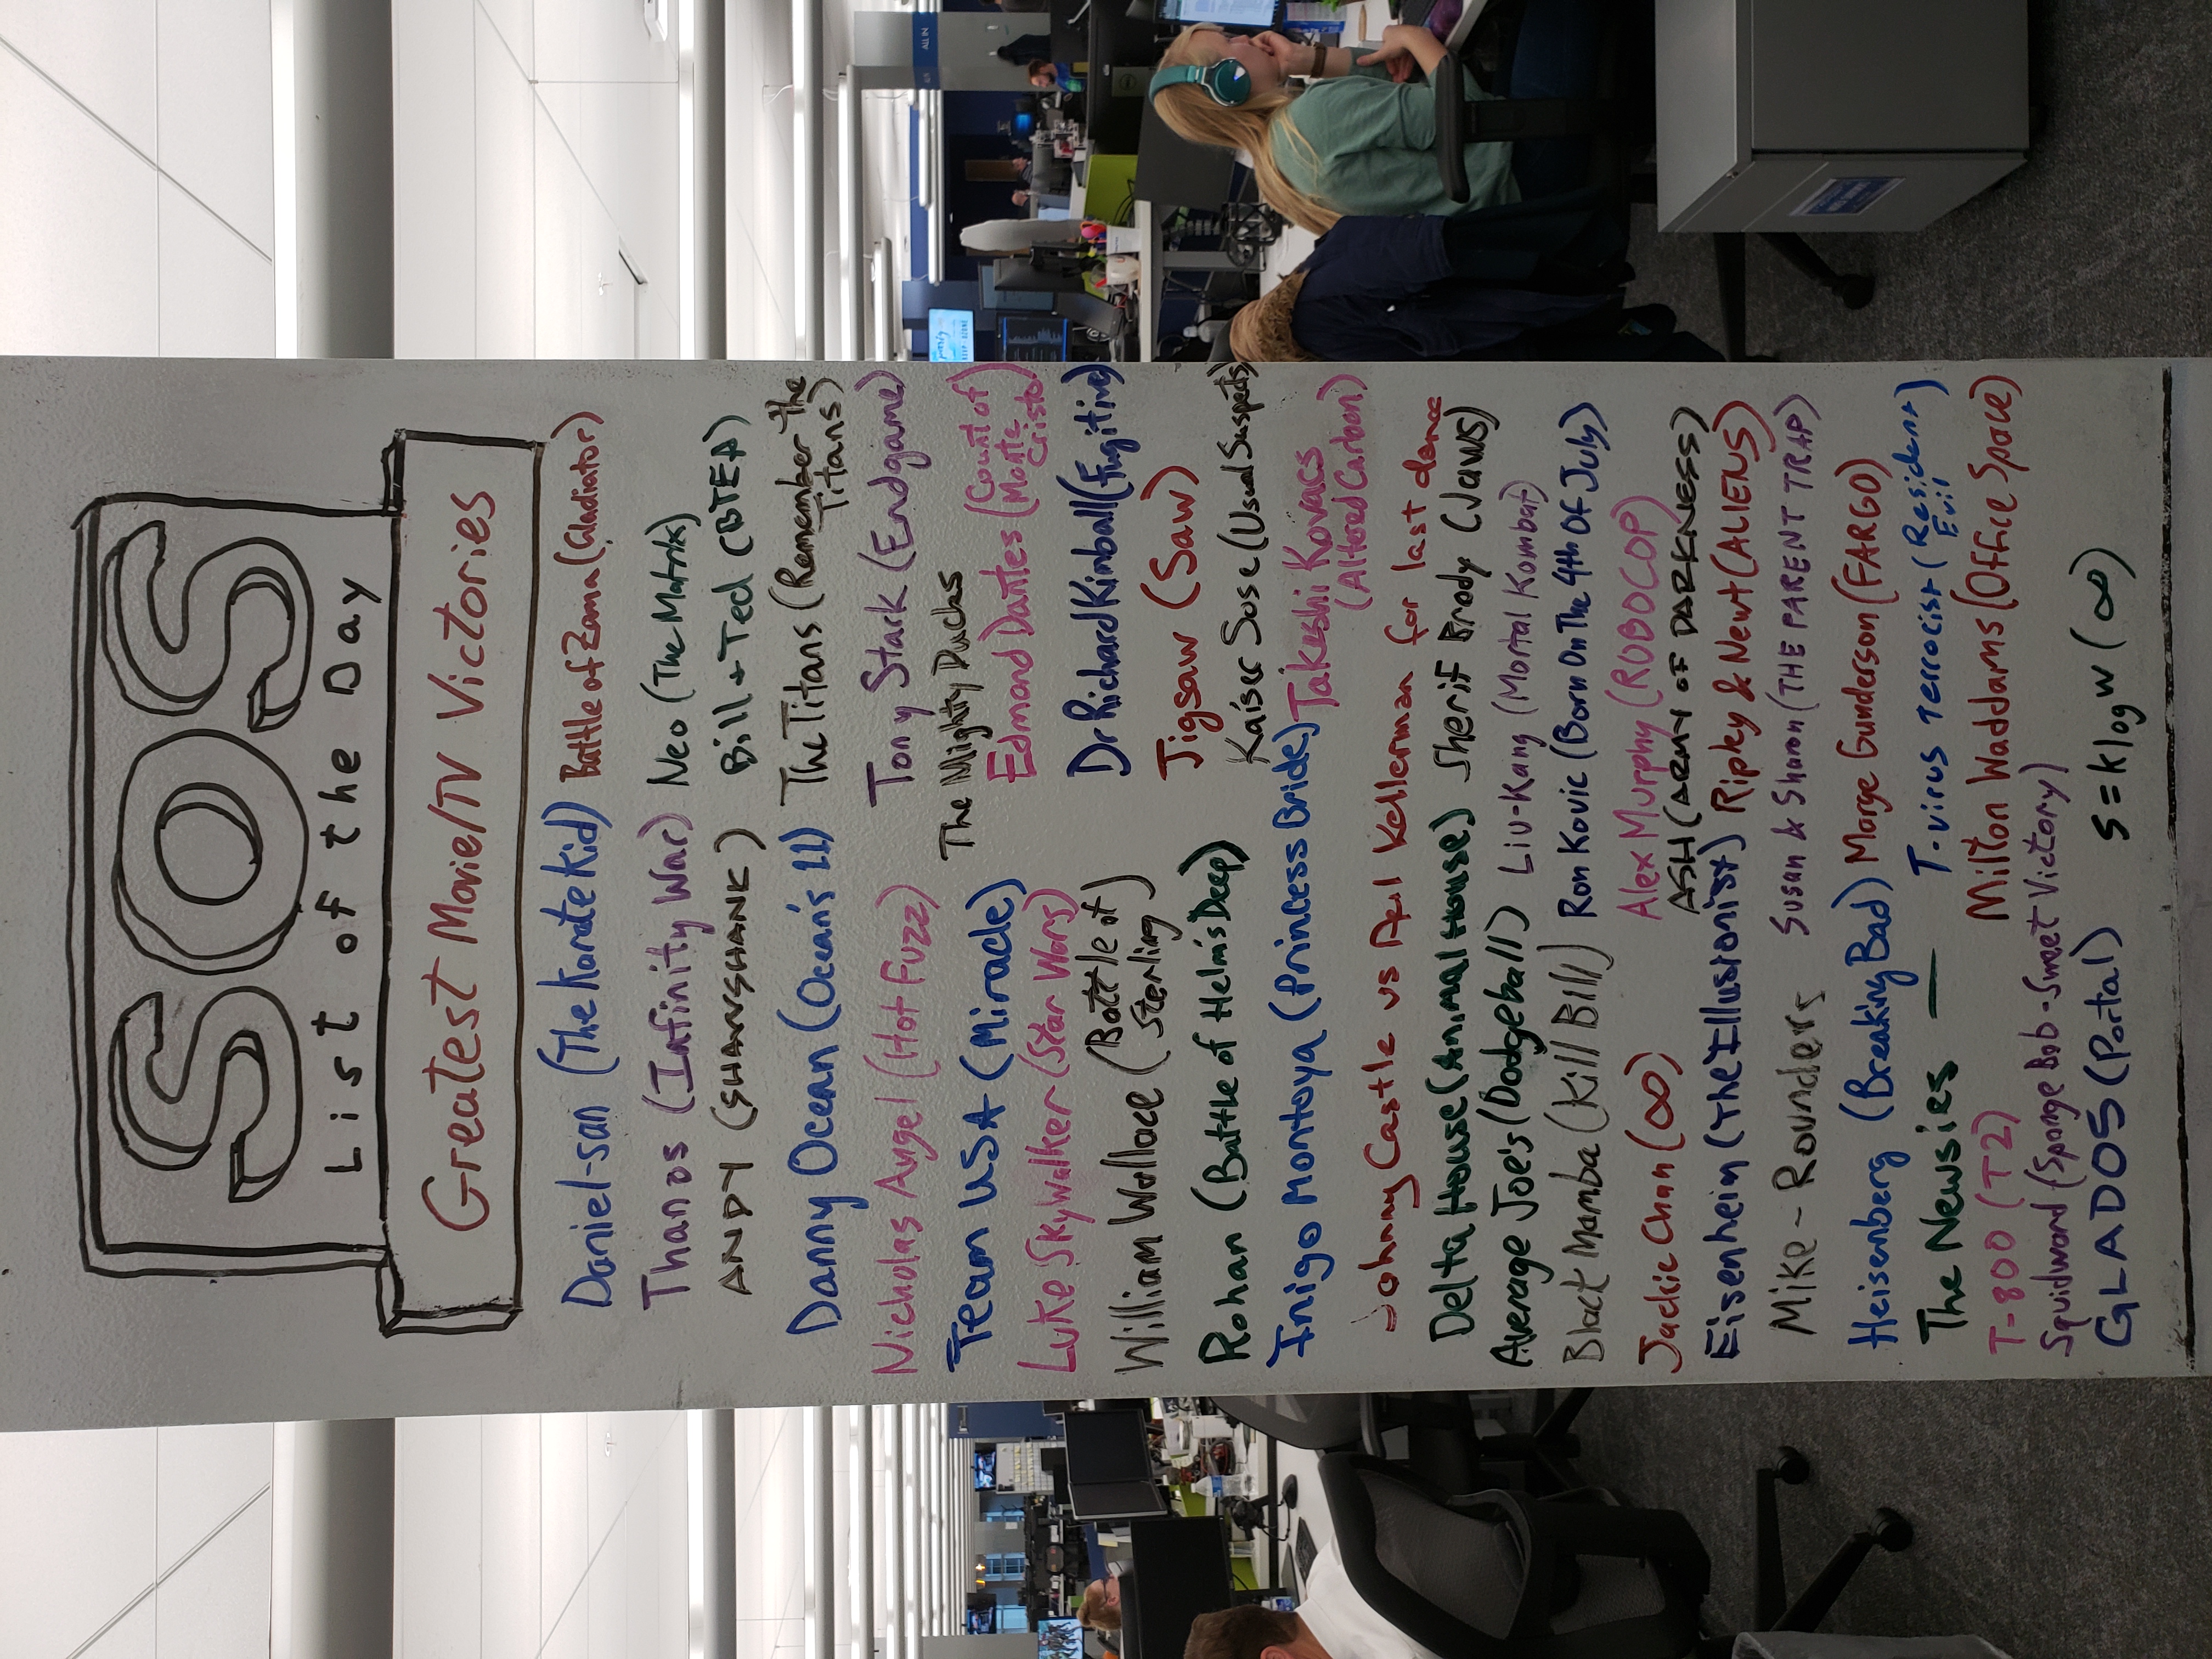 SOS
List of the Day
Greatest Movie/TV Victories
Daniel-san (The Karate Kid)
Battle of Zama (Gladiator)
Thanos (Infinity War)
Neo (The Matrix)
ANDY (SHAWSHANK)
Bill + Ted (BTEA)
Danny Ocean (Ocean's 11)
The Titans (Remember the
Titans)
Nicholas Angel (Hot Fuzz)
Tony Stark (Endgame)
Team USA (Miracle)
The Mighty Ducks
Edmond Dantes (Count of
Monte
Cristo)
Luke Skywalker (Star Wars)
Dr Richard Kimball (Fugitive)
William Wallace (Battle of
Sterling)
Jigsaw (Saw)
Rohan (Battle of Helm's Deep)
Kaiser Sose (Usual Suspects)
Inigo Montoya (Princess Bride)
Takeshi Kovacs
(Altered Carbon)
Johnny Castle vs Kellerman for last dance
Delta House (Animal House)
Sherif Brody (Jaws)
Average Joe's (Dodgeball)
Liu-Kang (Mortal Kombat)
Black Mamba (Kill Bill)
Ron Kovic (Born On The 4th Of July)
Jackie Chan (∞)
Alex Murphy (ROBOCOP)
ASH (ARMY OF DARKNESS)
Eisenheim (The Illusionist)
Ripley & Newt (ALIENS)
Mike - Rounders
Susan & Sharon (THE PARENT TRAP)
Heisenberg (Breaking Bad)
Marge Gunderson (FARGO)
The Newsies —
T-virus terrorist (Resident
Evil)
T-800 (T2)
Milton Waddams (Office Space)
Squidward (Sponge Bob - Sweet Victory)
GLADOS (Portal)
S = k log W (∞)
ALL IN